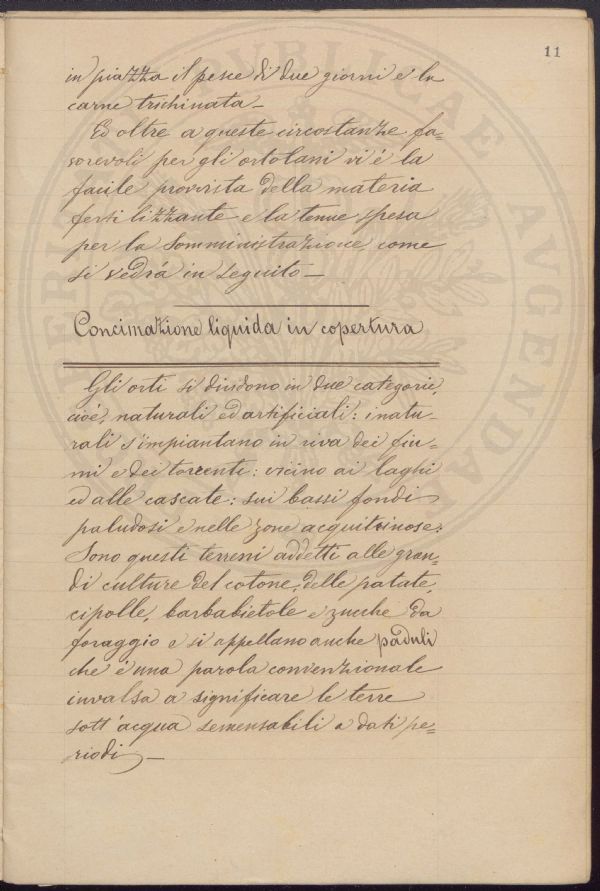 11
in piazza il pesce di due giorni e la
carne trichinata_
Ed oltre a queste circostanze fa=
vorevoli per gli ortolani vi é la
facile provvista della materia
fertilizzante e la tenue spesa
per la somministrazione, come
si vedrá in seguito_
Concimazione liquida in copertura
Gli orti si dividono in due categorie,
cioé, naturali ed artificiali: i natu-
rali s'impiantano in riva dei fiu-
mi e dei torrenti: vicino ai laghi
ed alle cascate: sui bassi fondi
paludosi e nelle zone acquitrinose.
Sono questi terreni addetti alle gran=
di culture del cotone, delle patate,
cipolle, barbabietole e zucche da
foraggio e si appellano anche paduli
che é una parola convenzionale
invalsa a significare le terre
sott'acqua semensabili a dati pe=
riodi_
PVBLICAE AVGENDAE